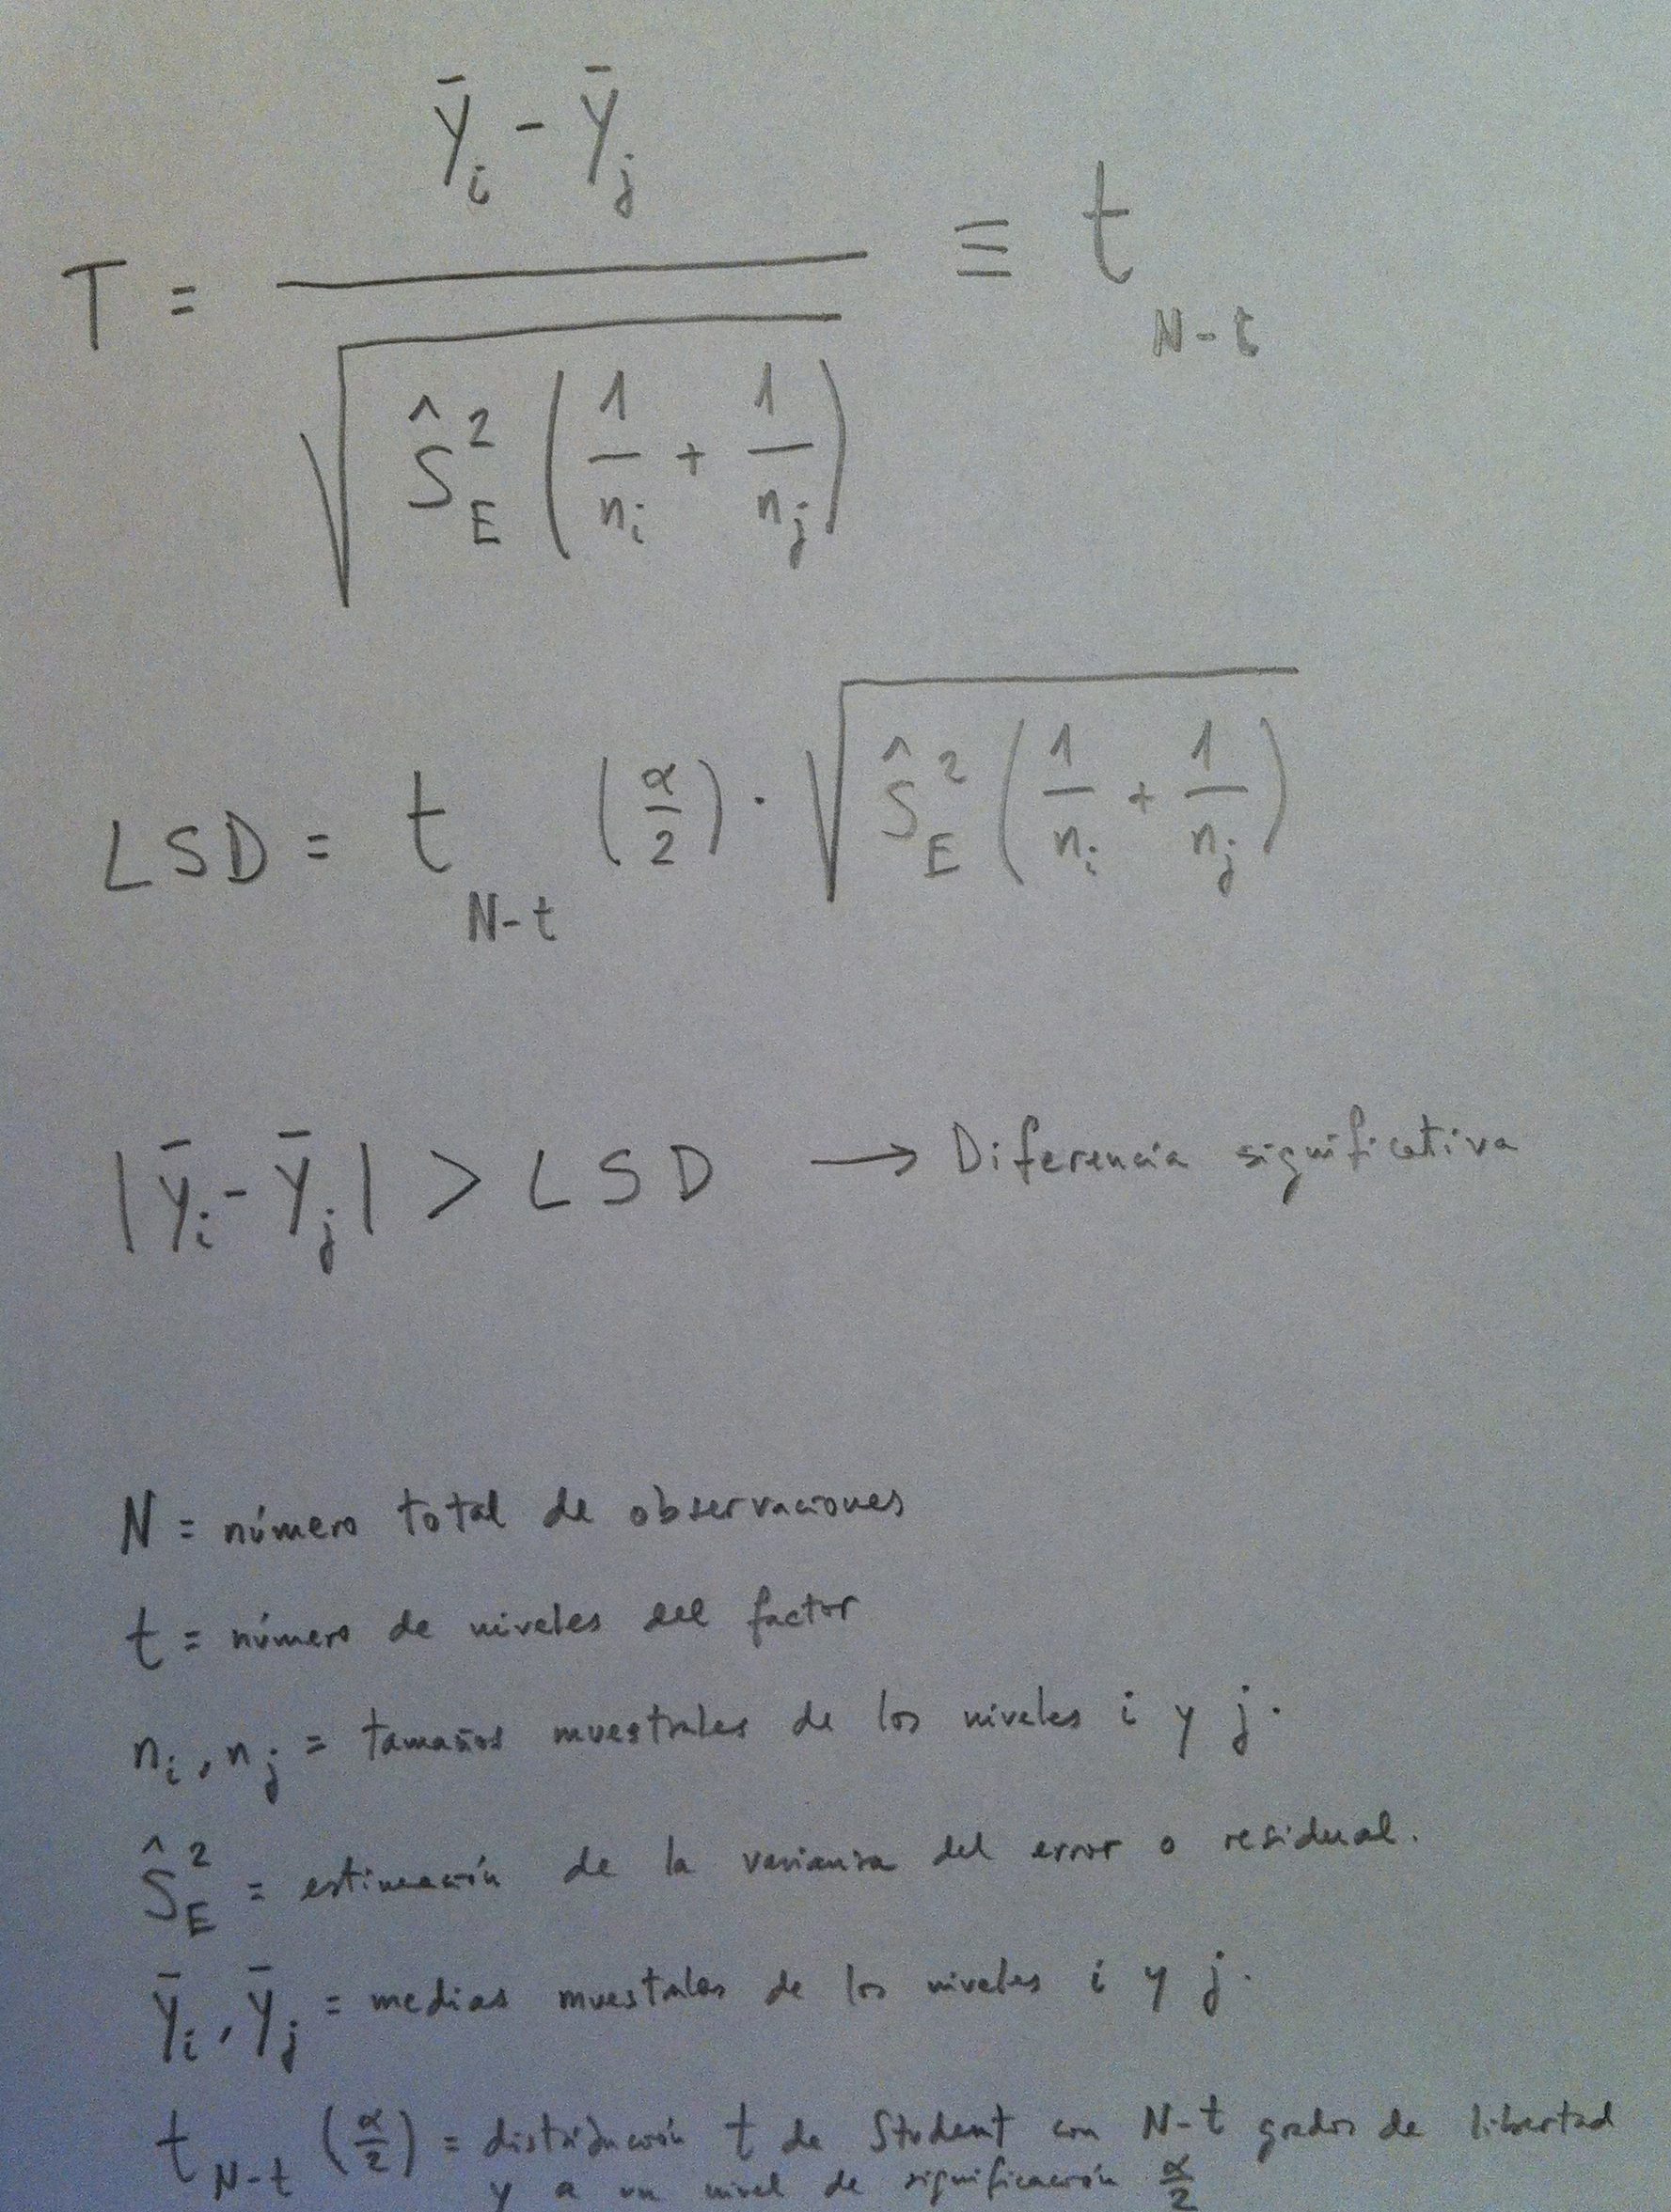 T = (ȳᵢ - ȳⱼ) / √(Ŝ²_E (1/nᵢ + 1/nⱼ)) ≡ t_N-t
LSD = t_N-t (α/2) · √(Ŝ²_E (1/nᵢ + 1/nⱼ))
|ȳᵢ - ȳⱼ| > LSD → Diferencia significativa
N = número total de observaciones
t = número de niveles del factor
nᵢ, nⱼ = tamaños muestrales de los niveles i y j.
Ŝ²_E = estimación de la varianza del error o residual.
ȳᵢ, ȳⱼ = medias muestrales de los niveles i y j.
t_N-t (α/2) = distribución t de Student con N-t grados de libertad
y a un nivel de significación α/2